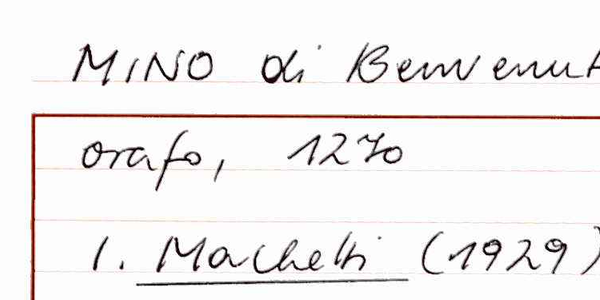 MINO di Benvenut
orafo, 1270
1. Machetti (1929)